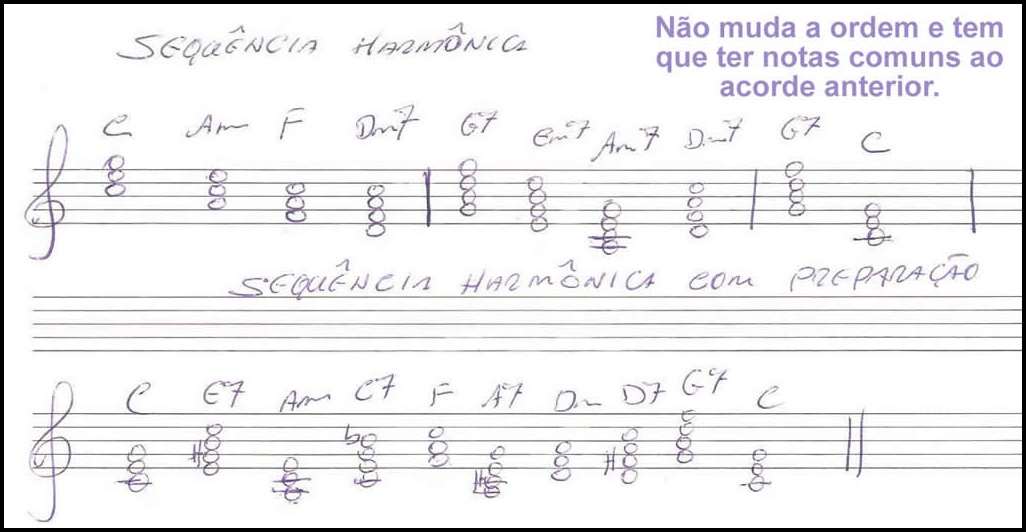 SEQUÊNCIA HARMÔNICA
Não muda a ordem e tem
que ter notas comuns ao
acorde anterior.
C Am F Dm7 G7 Em7 Am7 Dm7 G7 C
SEQUÊNCIA HARMÔNICA COM PREPARAÇÃO
C E7 Am C7 F A7 Dm D7 G7 C